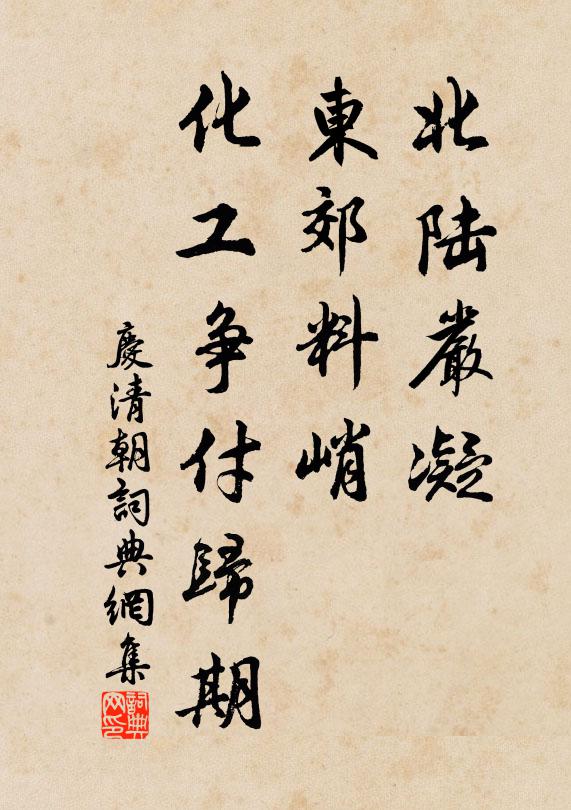 北陆嚴凝
東郊料峭
化工争付歸期
慶清朝詞典網集
詞典网印